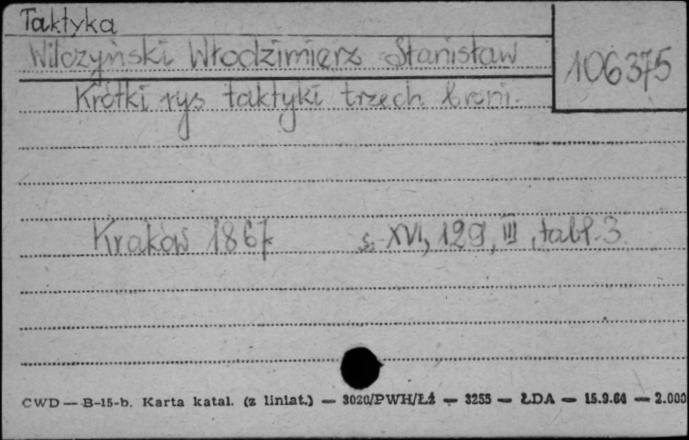 Taktyka
Wilczyński Włodzimierz Stanisław
106375
Krótki rys taktyki trzech broni.
Kraków 1867 s. XVI, 129, III, tabl. 3
CWD — B-15-b. Karta katal. (z liniat.) — 3020/PWH/Łź — 3255 — ŁDA — 15.9.64 — 2.000